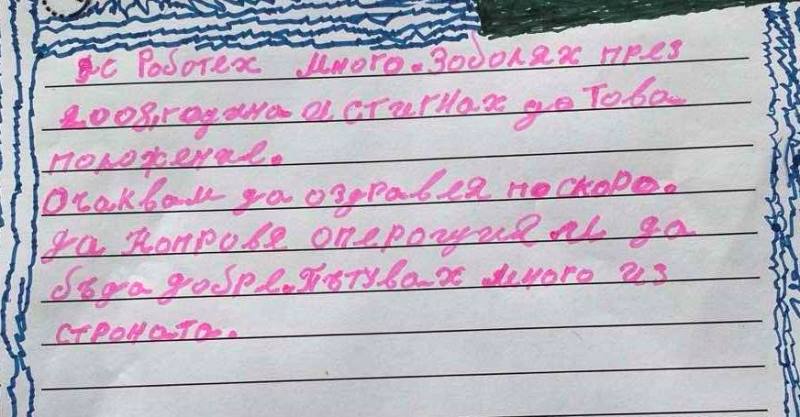 яс Роботех много. Зоболях през
2008, година и стигнах до това
положение.
Очаквам да оздравея поскоро.
да напровя оперогуия ... да
бъда добре. Пътувах много из
строната.